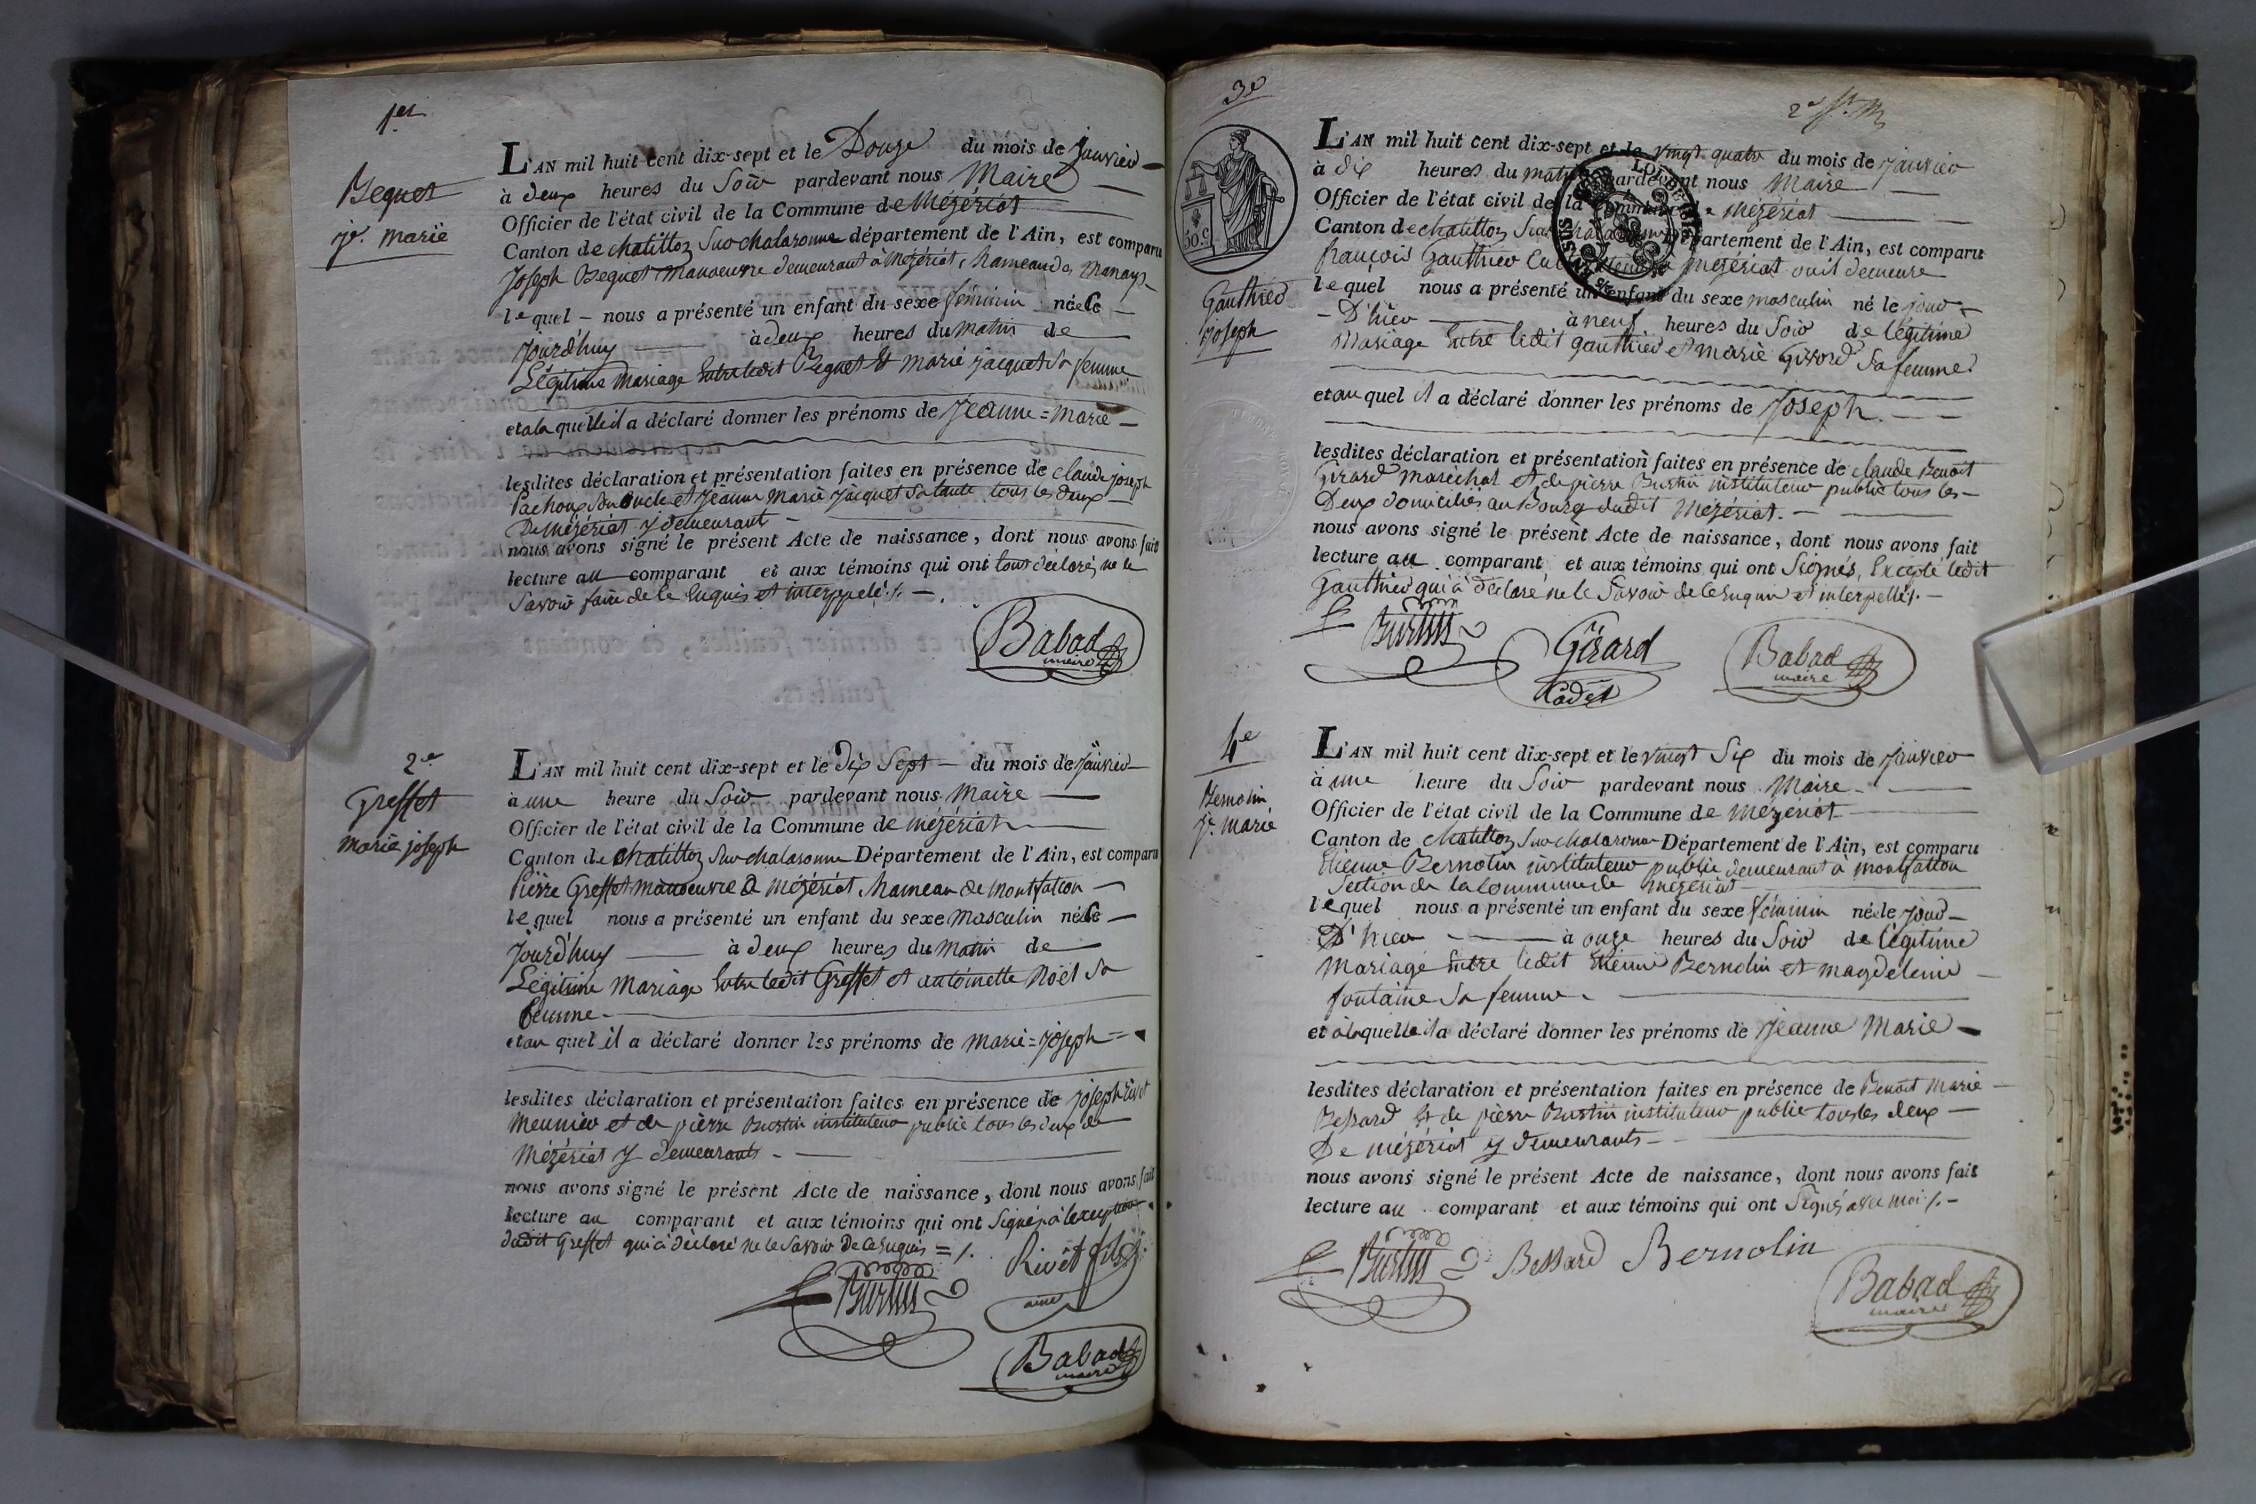 1er
Beguet
Je. marie
L'AN mil huit cent dix-sept et le Douze du mois de janvier
à deux heures du Soir pardevant nous Maire
Officier de l'état civil de la Commune de Mézériat
Canton de chatillon Sur chalaronne département de l'Ain, est comparu
Joseph Beguet Manoeuvre demeurant à Mézériat, hameau des
lequel - nous a présenté un enfant du sexe féminin née Ce
jourd'huy à deux heures du matin de
Légitime mariage Entre ledit Beguet Et Marie jacquet Sa femme
et a la quelle il a déclaré donner les prénoms de Jeanne = Marie
lesdites déclaration et présentation faites en présence de claude joseph
Pachoux Son oncle et Jeanne Marie Jacquet Sa tante, tous les deux
De Mézériat y demeurant
nous avons signé le présent Acte de naissance, dont nous avons fait
lecture au comparant et aux témoins qui ont tous déclarés ne le
Savoir faire de ce Enquis et interppelé ./.
Babad
maire
2e
Greffet
marie joseph
L'AN mil huit cent dix-sept et le dix Sept du mois de janvier
à une heure du Soir pardevant nous Maire
Officier de l'état civil de la Commune de Mézériat
Canton de chatillon Sur chalaronne Département de l'Ain, est comparu
Pierre Greffet manoeuvre de Mézériat hameau de Montfalcon
lequel nous a présenté un enfant du sexe Masculin né Ce
jourd'huy à deux heures du Matin de
Légitime Mariage Entre ledit Greffet et antoinette Noël Sa
femme
et au quel il a déclaré donner les prénoms de Marie = joseph =
lesdites déclaration et présentation faites en présence de joseph Rivet
Meunier et de pierre Burtin instituteur public tous les deux de
Mézériat y demeurants
nous avons signé le présent Acte de naissance, dont nous avons fait
lecture au comparant et aux témoins qui ont Signés à l'exception
dudit Greffet qui à déclaré ne le Savoir De ce Enquis = /.
Rivet fils
ainé
Burtin
Babad
maire
3e
2e
50.c
L'AN mil huit cent dix-sept et le vingt quatre du mois de janvier
à dix heures du matin pardevant nous Maire
Officier de l'état civil de la Commune de Mézériat
Canton de chatillon Sur chalaronne Département de l'Ain, est comparu
françois Gauthier Cultivateur Mézériat ou il demeure
Gauthier
joseph
lequel nous a présenté un enfant du sexe masculin né le jour
D'hier à neuf heures du Soir de légitime
Mariage Entre ledit gauthier et marie Girard Sa femme
et au quel il a déclaré donner les prénoms de Joseph.
lesdites déclaration et présentation faites en présence de claude Benoit
Girard Maréchal et de pierre Burtin instituteur public tous les
Deux domiciliés au Bourg dudit Mézériat.
nous avons signé le présent Acte de naissance, dont nous avons fait
lecture au comparant et aux témoins qui ont Signés, Excepté ledit
Gauthier qui à déclaré ne le Savoir de ce Enquis et interpellé /.
Burtin
Girard
Cadet
Babad
maire
4e
Bernolin
Je. Marie
L'AN mil huit cent dix-sept et le vingt Six du mois de janvier
à une heure du Soir pardevant nous Maire
Officier de l'état civil de la Commune de Mézériat
Canton de chatillon Sur chalaronne Département de l'Ain, est comparu
Etienne Bernolin instituteur public demeurant à montfalcon
Section de la Commune de Mézériat
lequel nous a présenté un enfant du sexe féminin née le jour
D'hier à onze heures du Soir de légitime
Mariage Entre ledit Etienne Bernolin et magdeleine
fontaine Sa femme.
et à laquelle il a déclaré donner les prénoms de Jeanne Marie
lesdites déclaration et présentation faites en présence de Benoit Marie
Bessard Et de pierre Burtin instituteur public tous les deux
De Mézériat y demeurants
nous avons signé le présent Acte de naissance, dont nous avons fait
lecture au comparant et aux témoins qui ont Signés avec moi /.
Burtin
Bessard
Bernolin
Babad
maire